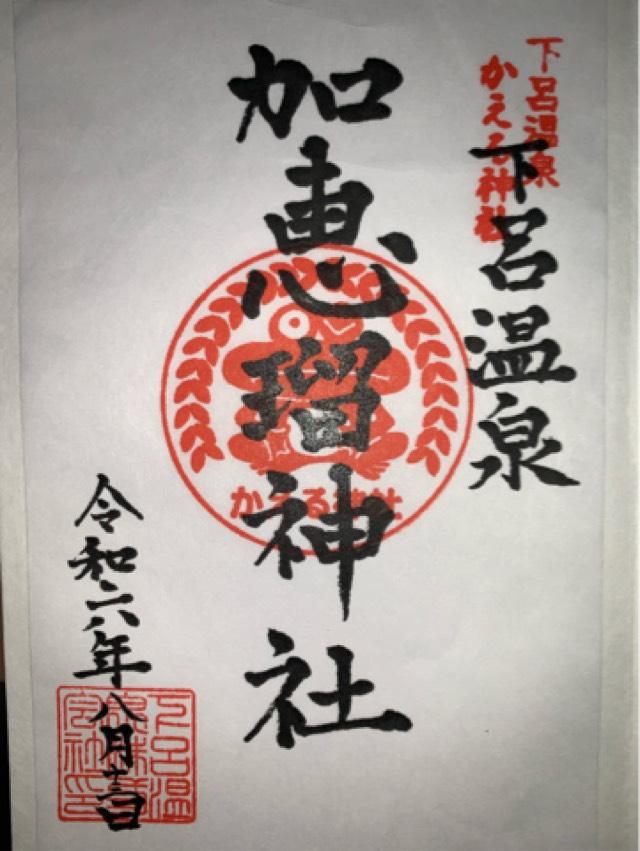 下呂温泉
かえる神社
下呂温泉
加恵瑠神社
かえる神社
令和六年八月日
下呂温